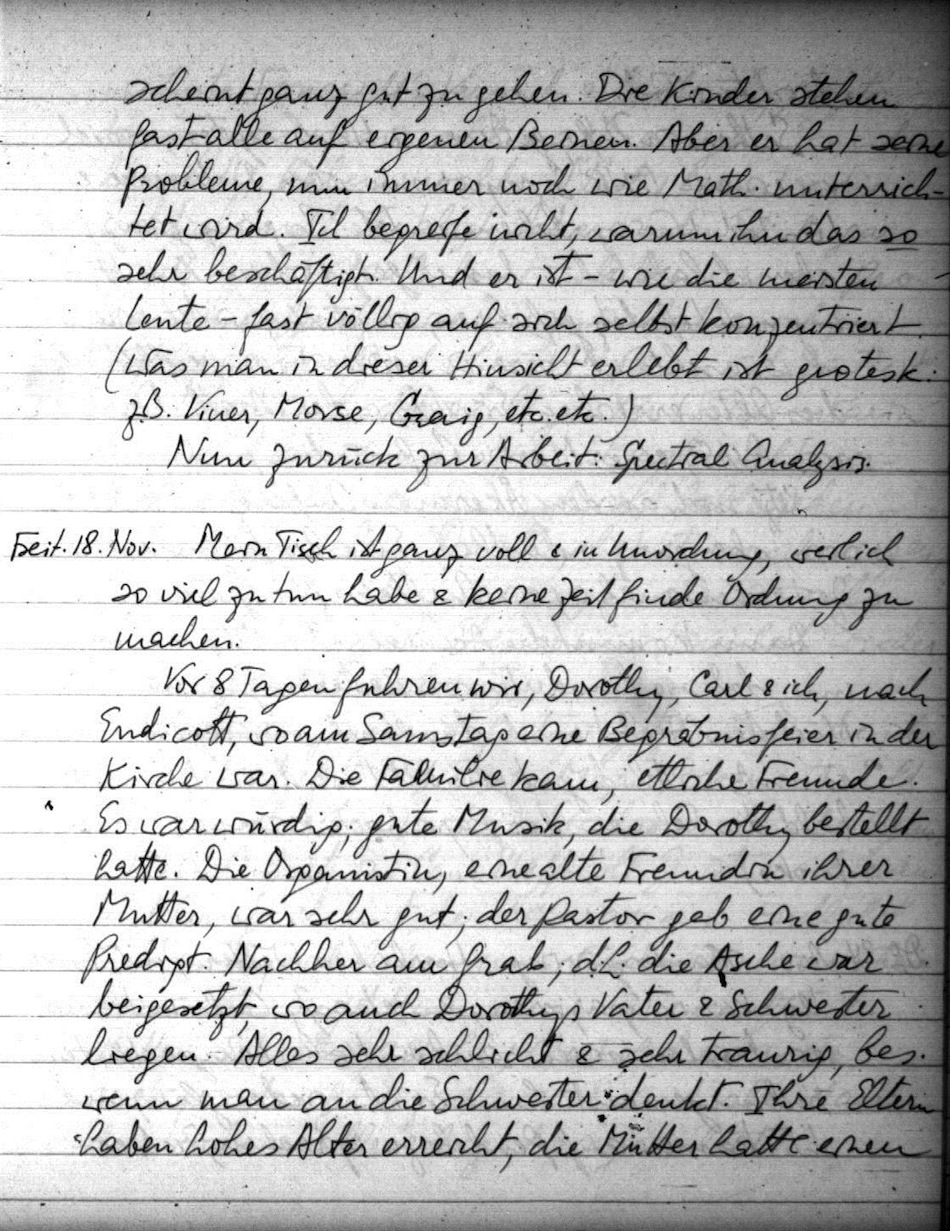 scheint ganz gut zu gehen. Die Kinder stehen
fast alle auf eigenen Beinen. Aber er hat seine
Probleme, nun immer noch wie Math. unterrich-
tet wird. Ich begreife nicht, warum ihn das so
sehr beschäftigt. Und er ist – wie die meisten
Leute – fast völlig auf sich selbst konzentriert
(Was man in dieser Hinsicht erlebt ist grotesk.
z.B. Viner, Morse, Craig, etc. etc.)
Nun zurück zur Arbeit: Spectral Analysis.
Freit. 18. Nov. Mein Tisch ist ganz voll & in Unordnung, weil ich
so viel zu tun habe & keine Zeit finde Ordnung zu
machen.
Vor 8 Tagen fuhren wir, Dorothy, Carl & ich, nach
Endicott, wo am Samstag eine Begräbnisfeier in der
Kirche war. Die Familie kam, etliche Freunde.
Es war würdig; gute Musik, die Dorothy bestellt
hatte. Die Organistin, eine alte Freundin ihrer
Mutter, war sehr gut; der Pastor gab eine gute
Predigt. Nachher am Grab; d.h. die Asche war
beigesetzt, wo auch Dorothys Vater & Schwester
liegen. Alles sehr schlicht & sehr traurig, bes.
wenn man an die Schwester denkt. Ihre Eltern
haben hohes Alter erreicht, die Mutter hatte einen